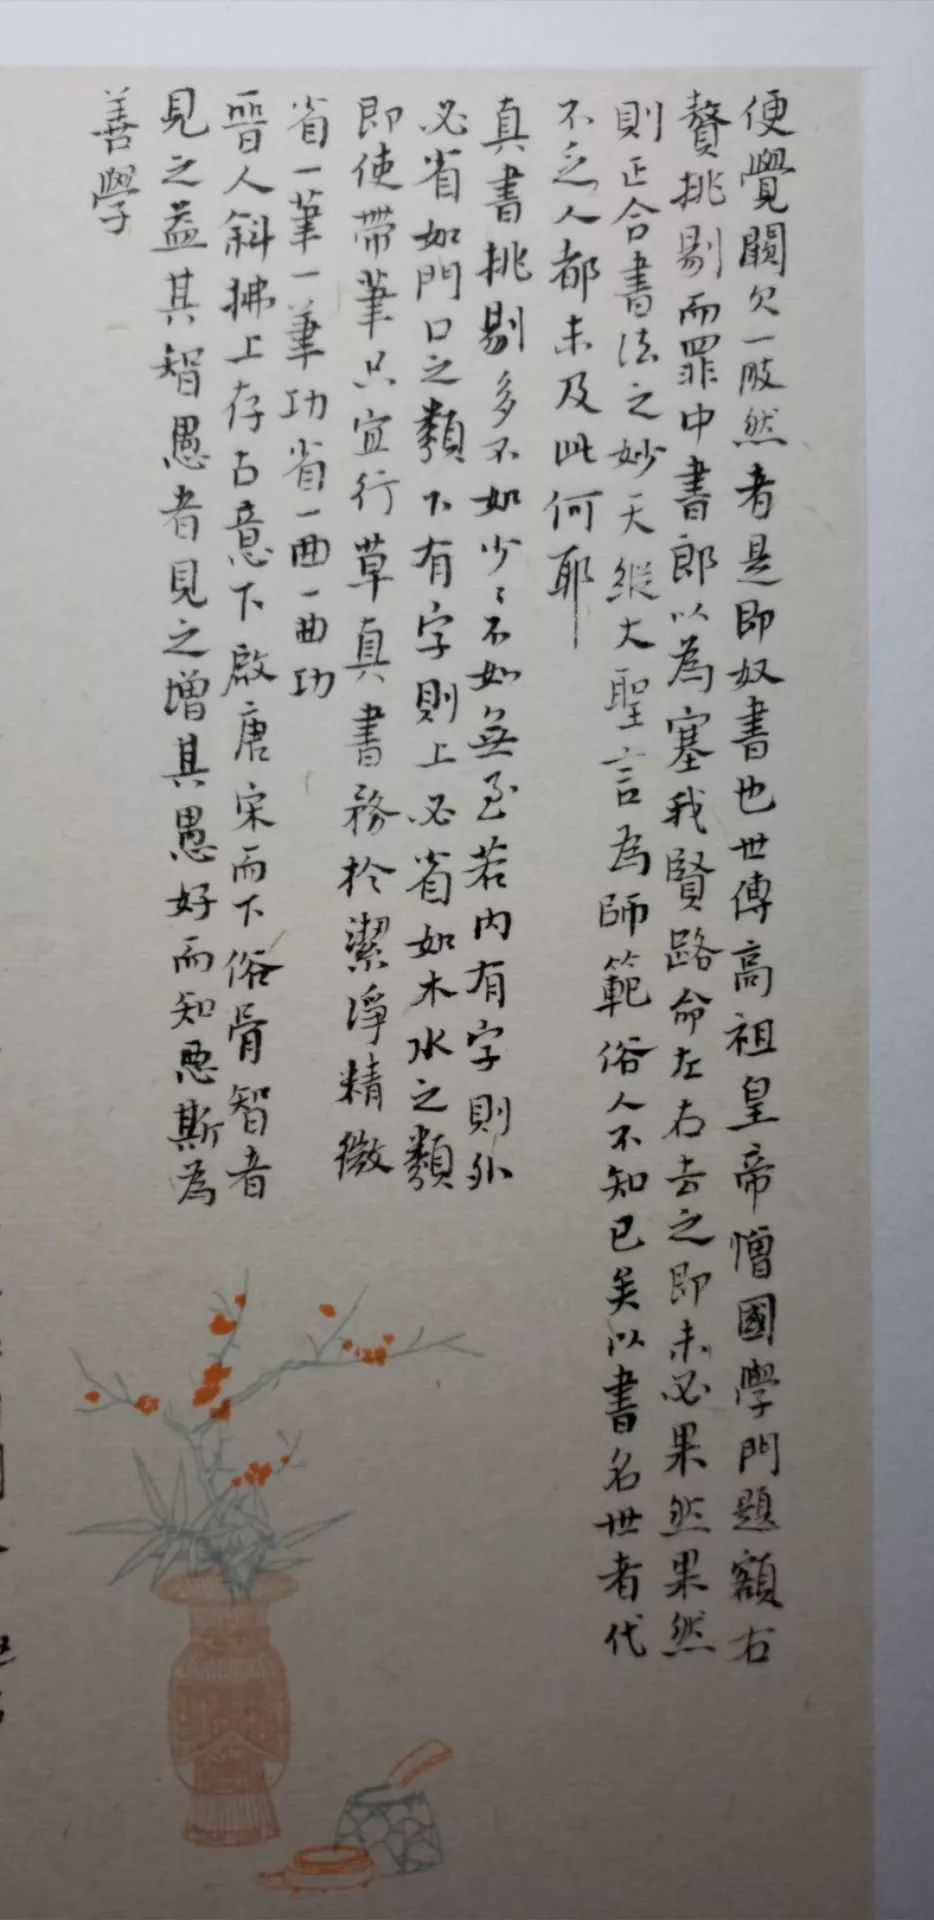 便覺闕欠一肢然者是即奴書也世傳高祖皇帝憎國學門題額右
贅挑剔而罪中書郎以為塞我賢路命左右去之即未必果然果然
則正合書法之妙天縱大聖言為師範俗人不知已矣以書名世者代
不乏人都未及此何耶
真書挑剔多不如少〻不如無至若内有字則外
必省如門口之類下有字則上必省如木水之類
即使帶筆只宜行草真書務於潔淨精微
省一筆一筆功省一曲一曲功
晉人斜拂上存古意下啟唐宋而下俗骨智者
見之益其智愚者見之增其愚好而知惡斯為
善學